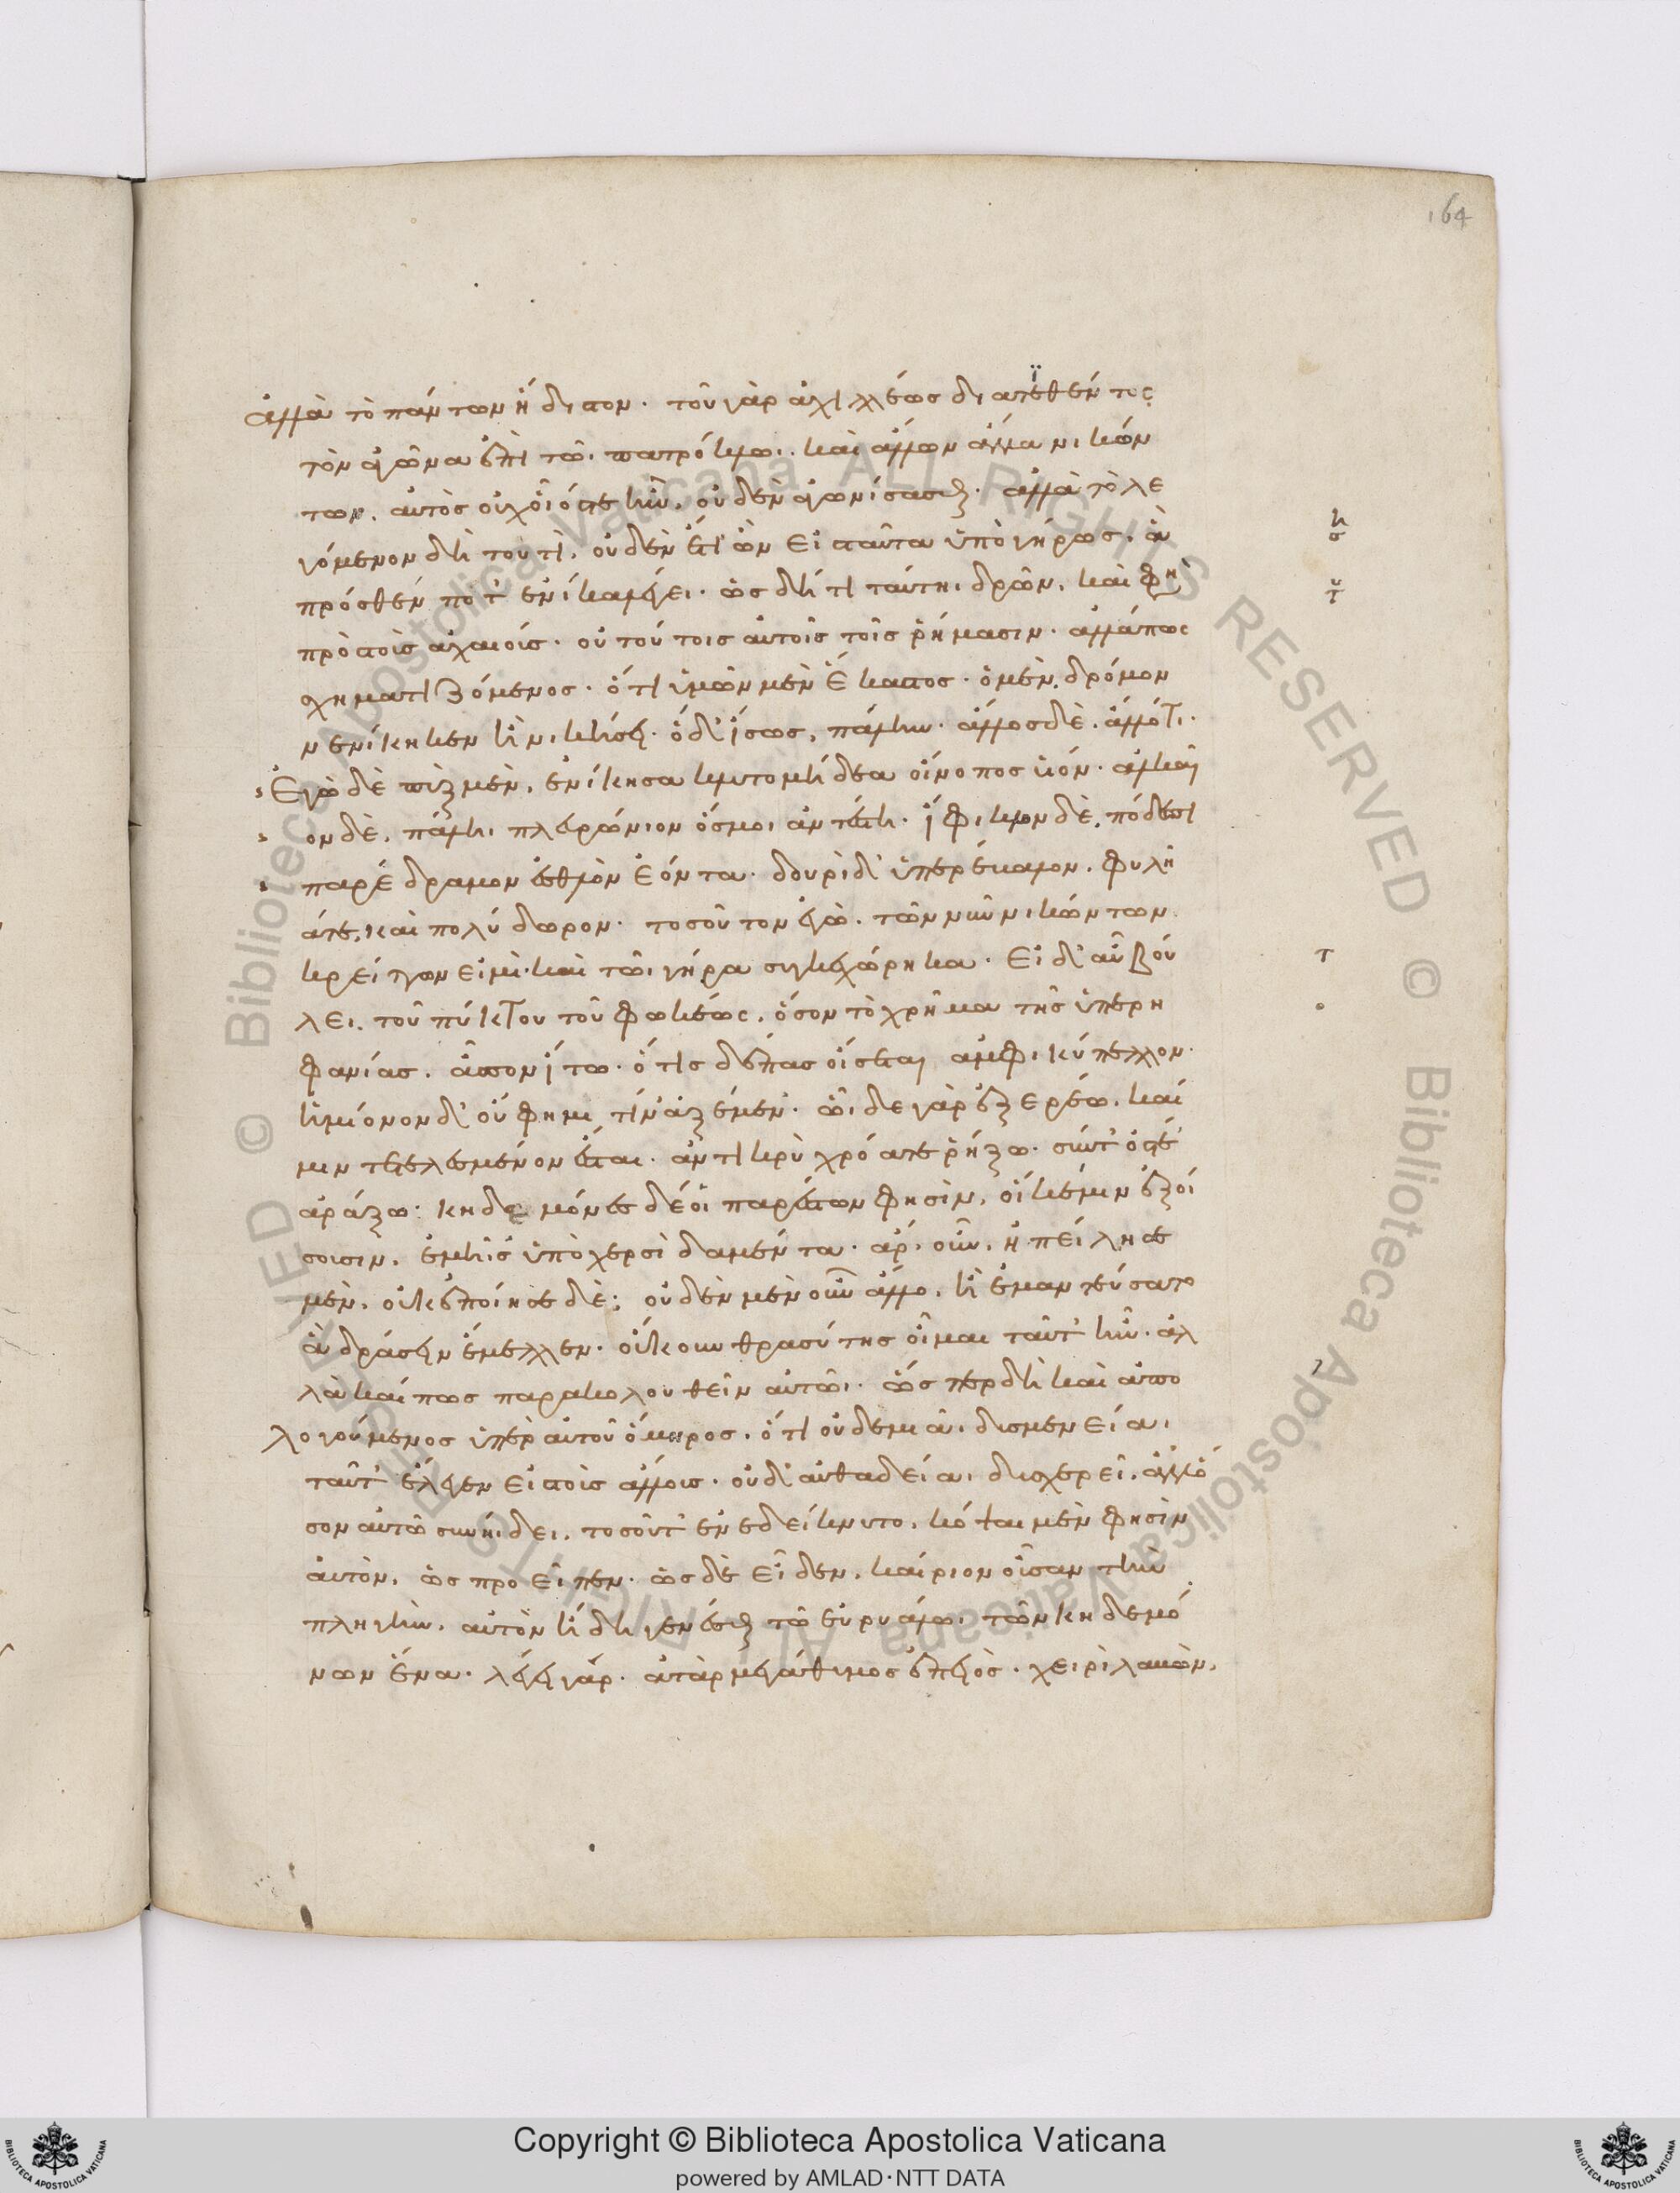 164
ἀλλὰ τὸ πάντων ἥδιστον. τοῦ γὰρ ἀχιλλέως διατιθέντος
τὸν ἀγῶνα ἐπὶ τῶι πατρόκλωι. καὶ ἄλλων ἄλλα νικών
των, αὐτὸς οὐχ οἷός τε ἦν, οὐδὲν ἀγωνίσασθαι. ἀλλὰ τὸ λε
γόμενον δὴ τουτὶ, οὐδὲν ἔτι ὢν εἰ ταῦτα ὑπὸ γήρως, ἃ
πρόσθέν ποτ' ἐνίκα λέγει. ὡς δή τι ταύτηι δρῶν, καὶ φη
πρὸς τοὺς ἀχαιούς. οὐ τούτοις αὐτοῖς τοῖς ῥήμασιν. ἀλλά πως
σχηματιζόμενος. ὅτι ὑμῶν μὲν ἕκαστος. ὁ μὲν, δρόμον
νενίκηκεν ἢ νικήσει. ὁ δ' ἴσως, πάλην. ἄλλος δὲ, ἄλλό τι.
Ἐγὼ δὲ πὺξ μὲν, ἐνίκησα κλυτομήδεα οἴνοπος υἱόν. ἀγκαῖ
ον δὲ, πάλη πλευρώνιον ὅς μοι ἀνέστη. ἴφικλον δὲ, πόδεσσι
παρέδραμον ἐσθλὸν ἐόντα. δουρὶ δ' ὑπερέβαλον, φυλῆ
ά τε, καὶ πολύδωρον. τοσοῦτον ἐγὼ, τῶν νῦν νικώντων
κρείττων εἰμὶ. καὶ τῶι γήρα συγκεχώρηκα. εἰ δ' αὖ βού
λει, τοῦ πύκτου τοῦ φωκέως, ὅσον τὸ χρῆμα τῆς ὑπερη
φανίας. ἆσσον ἴτω. ὅτις δέπας οἴσεται ἀμφικύπελλον.
ἡμίονον δ' οὔ φημι τίν' ἀξέμεν. ὧδε γὰρ ἐξερέω, καί
μιν τετελεσμένον ἔσται. ἀντικρὺ χρόα τε ῥήξω. σύν τ' ὀστέ'
ἀράξω: κηδεμόνες δέ οἱ παρέστων φησὶν, οἵ κέ μιν ἐξοί
σουσιν, ἐμῆς ὑπὸ χερσὶ δαμέντα. ἆρ' οὖν, ἠπείλησε
μὲν, οὐκ ἐποίησε δὲ; οὐδὲν μὲν οὖν ἄλλο, ἢ ἐμαντεύσατο
ἃ δράσειν ἔμελλεν. οὔκουν θρασύτης οἶμαι ταῦτ' ἦν. ἀλ
λὰ καί πως παρακολουθεῖν αὐτῶι. ὥσπερ δὴ καὶ ἀπο
λογούμενος ὑπὲρ αὐτοῦ ὅμηρος, ὅτι οὐδεμιᾶι δυσμενείαι
ταῦτ' ἔλεγεν εἰς τοὺς ἄλλους. οὐδ' αὐθαδείαι δυσχερεῖ, ἀλλ' ὅ
σον αὑτῶ συνήιδει, τοσοῦτ' ἐνεδείκνυτο, κόψαι μὲν φησὶν
αὐτὸν, ὡς προεῖπεν. ὡς δὲ εἶδεν, καίριον οὖσαν τὴν
πληγὴν, αὐτὸν ἤδη γενέσθαι τῶ εὐρυάλωι τῶν κηδεμό
νων ἕνα. λέγει γάρ. αὐτὰρ μεγάθυμος ἐπειὸς. χειρὶ λαβὼν,